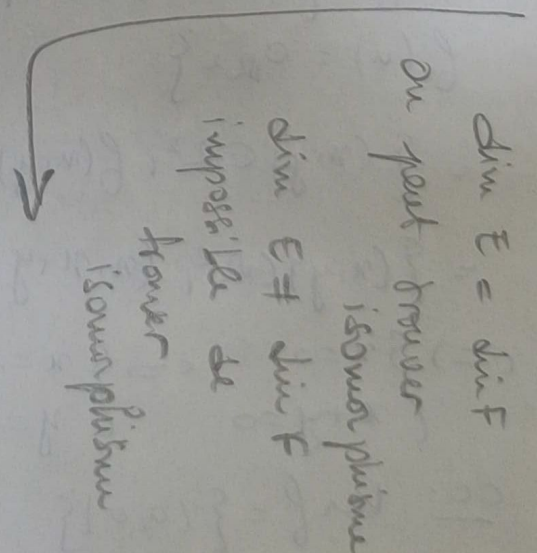 dim E = dim F
on peut trouver
isomorphisme
dim E ≠ dim F
impossible de
trouver
isomorphisme